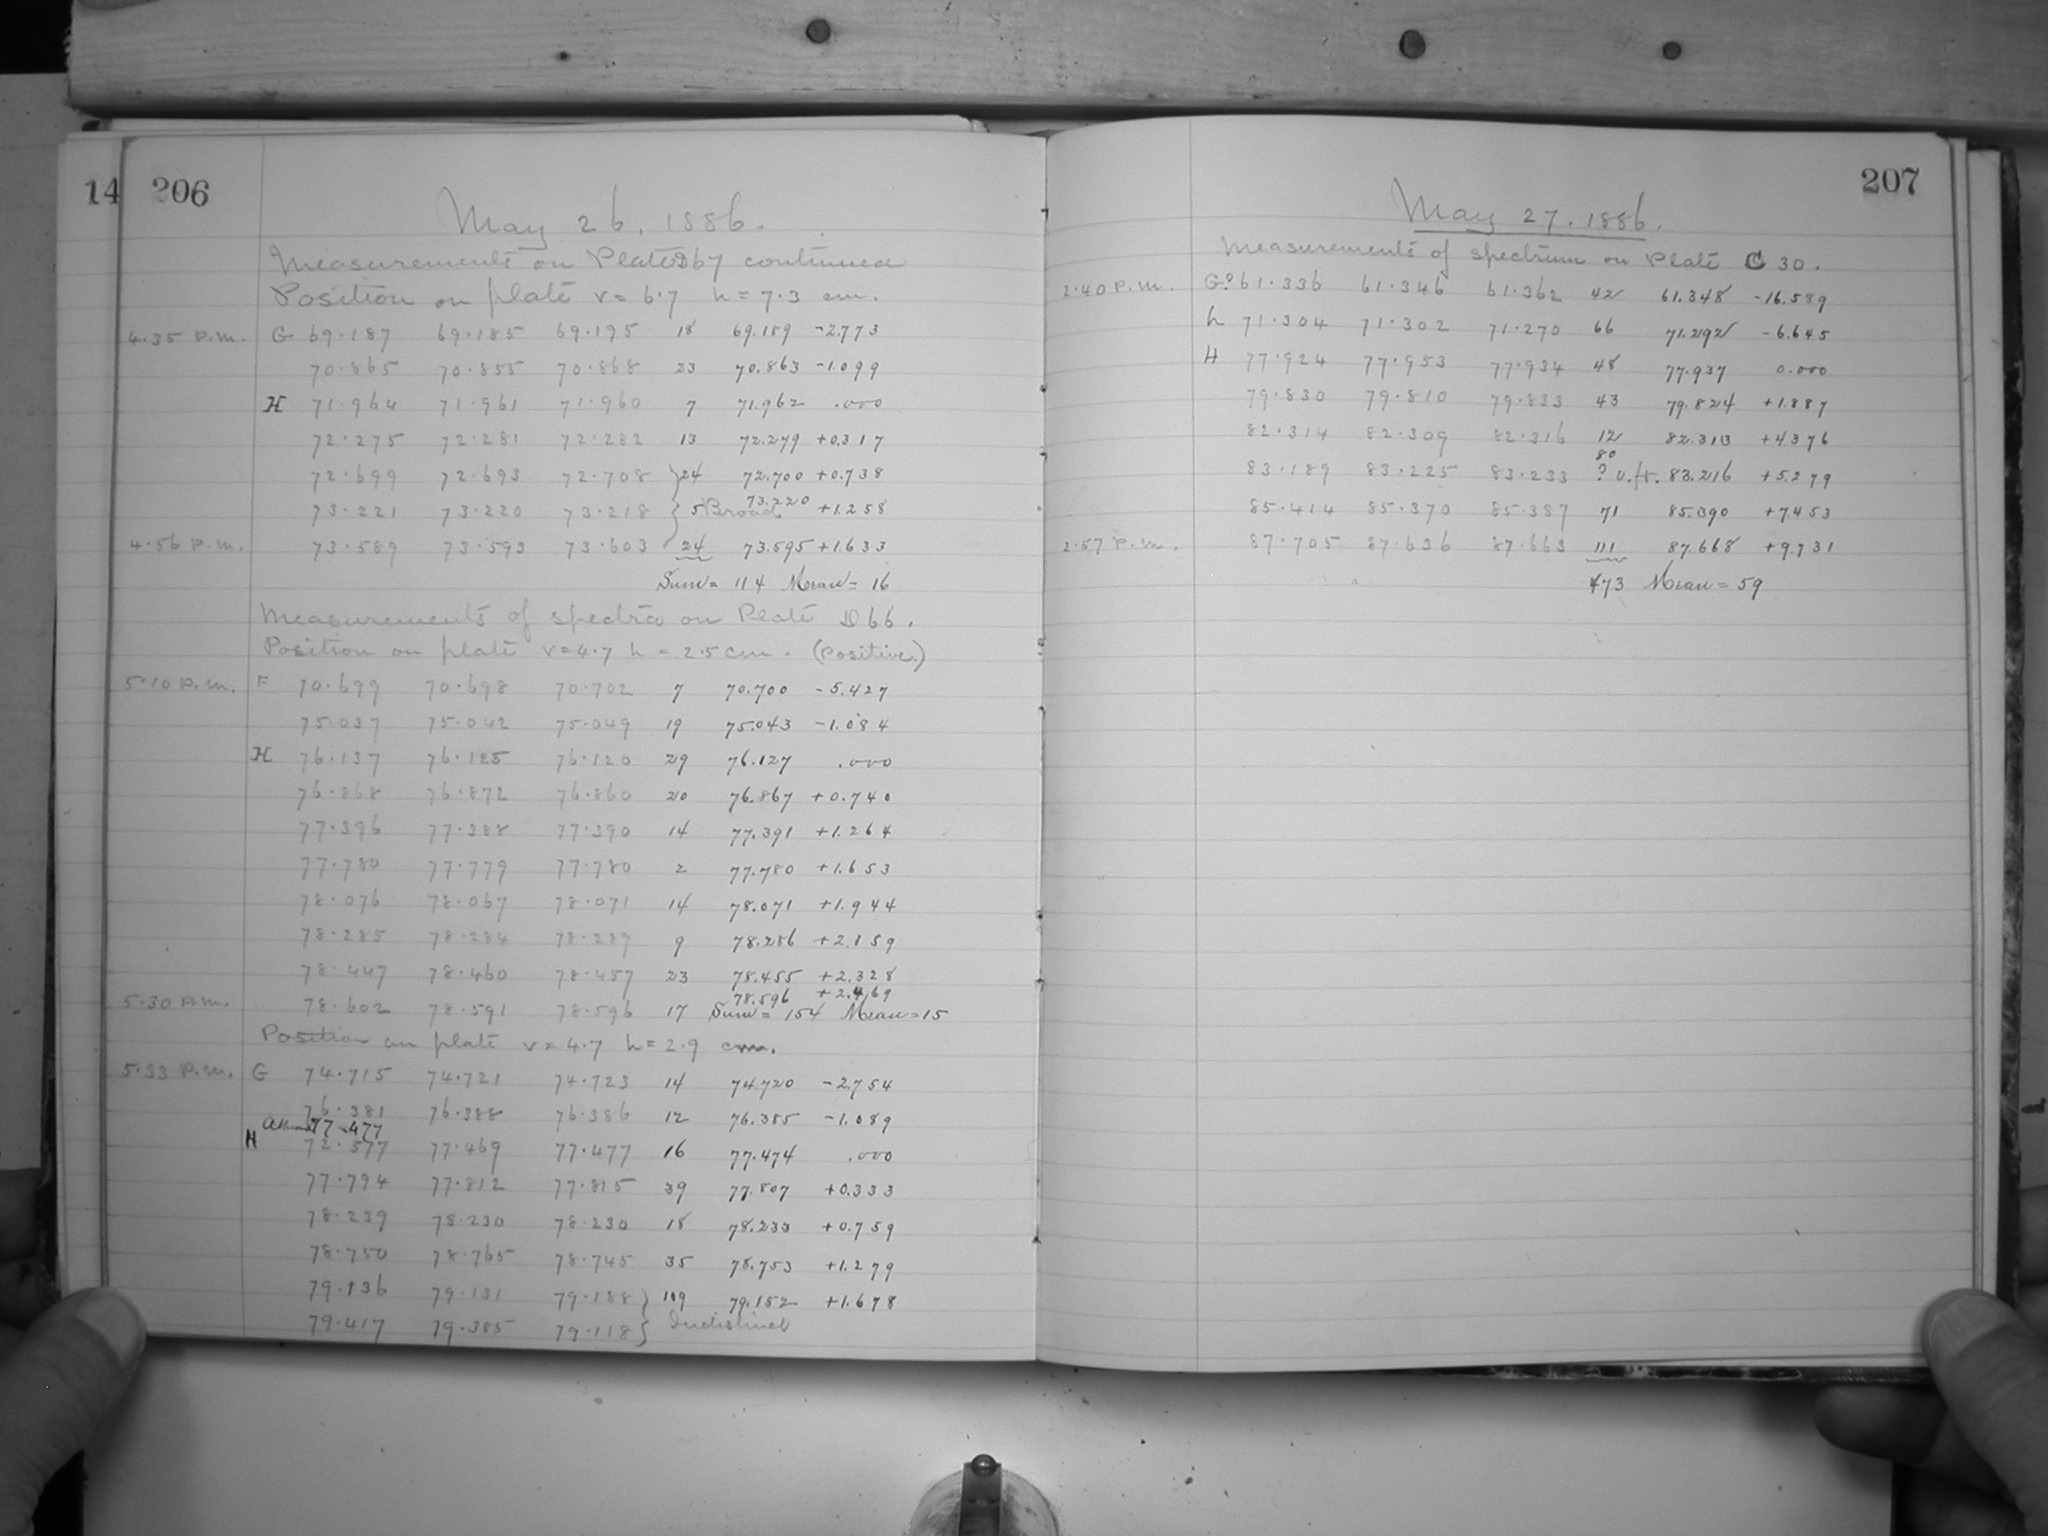 14
206
May 26, 1886.
Measurements on Plate D67 continued
Position on plate v = 6.7 h = 7.3 cm.
4.35 P.m. G 69.187 69.185 69.195 18 69.189 -2.773
70.865 70.855 70.868 23 70.863 -1.099
H 71.964 71.961 71.960 7 71.962 .000
72.275 72.281 72.282 13 72.279 +0.317
72.699 72.693 72.708 24 72.700 +0.738
73.221 73.220 73.218 5 Broad 73.220 +1.258
4.56 P.m. 73.589 73.593 73.603 24 73.595 +1.633
Sum = 114 Mean = 16
Measurements of spectra on Plate D66.
Position on plate v = 4.7 h = 2.5 cm. (Positive.)
5.10 P.m. F 70.699 70.698 70.702 7 70.700 -5.427
75.037 75.042 75.049 19 75.043 -1.084
H 76.137 76.125 76.120 29 76.127 .000
76.868 76.872 76.860 20 76.867 +0.740
77.396 77.388 77.390 14 77.391 +1.264
77.780 77.779 77.780 2 77.780 +1.653
78.076 78.067 78.071 14 78.071 +1.944
78.285 78.284 78.287 9 78.286 +2.159
78.447 78.460 78.457 23 78.455 +2.328
78.596 +2.469
5.30 P.m. 78.602 78.591 78.596 17 Sum = 154 Mean = 15
Position on plate v = 4.7 h = 2.9 cm.
5.33 P.m. G 74.715 74.721 74.723 14 74.720 -2.754
76.381 76.388 76.386 12 76.385 -1.089
77.477
H 72.577 77.469 77.477 16 77.474 .000
77.794 77.812 77.815 39 77.807 +0.333
78.239 78.230 78.230 18 78.233 +0.759
78.750 78.765 78.745 35 78.753 +1.279
79.136 79.131 79.188 109 79.152 +1.678
79.417 79.385 79.118 Indistinct
207
May 27. 1886.
Measurements of spectrum on Plate C 30.
2.40 P.m. G? 61.336 61.346 61.362 42 61.348 -16.589
h 71.304 71.302 71.270 66 71.292 -6.645
H 77.924 77.953 77.934 48 77.937 0.000
79.830 79.810 79.833 43 79.824 +1.887
82.314 82.309 82.316 12 82.313 +4.376
80
83.189 83.225 83.233 ? v.ft. 83.216 +5.279
85.414 85.370 85.387 71 85.390 +7.453
2.57 P.m. 87.705 87.636 87.663 111 87.668 +9.731
473 Mean = 59